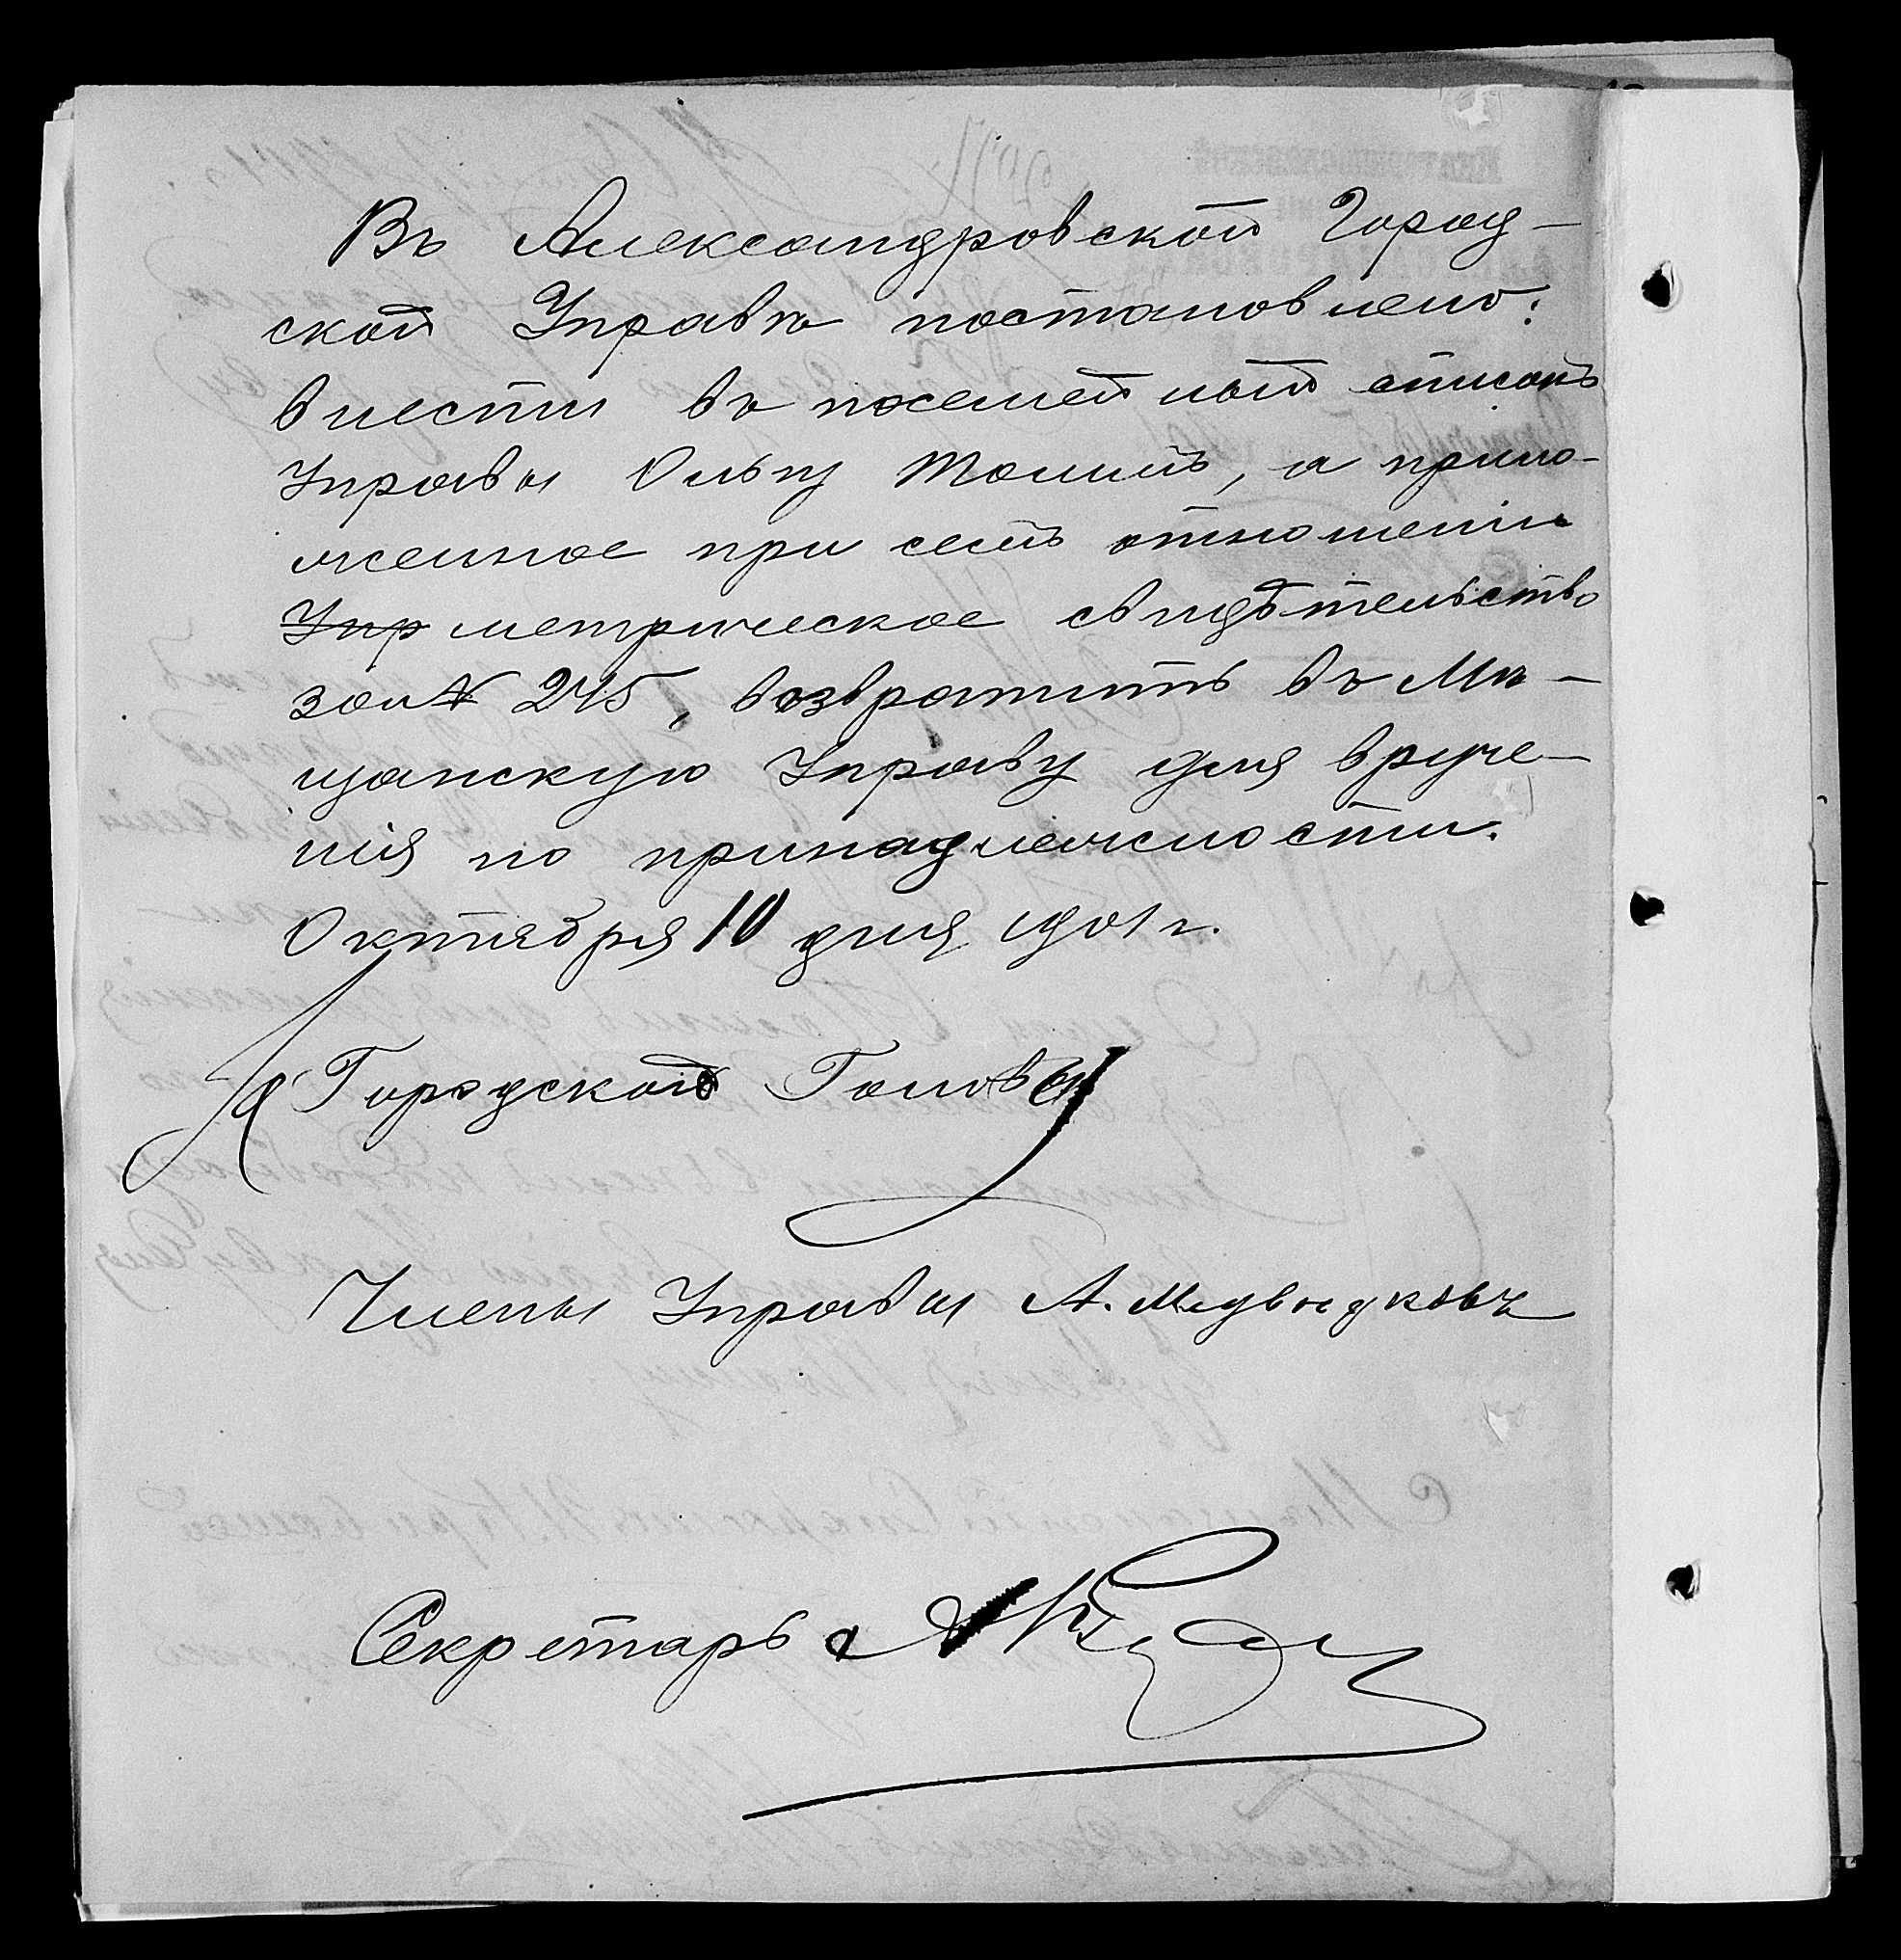 Въ Александровской Город-
ской Управѣ постановлено:
внести въ посемейный списокъ
Управы Ольгу Толимъ, а прило-
женное при семъ отношеніи
Упр метрическое свидѣтельство
за № 245, возвратить въ Мѣ-
щанскую Управу для вруче-
нія по принадлежности.
Октября 10 дня 1901 г.
Городской Головы
Члены Управы А. Медвѣдковъ
Секретарь